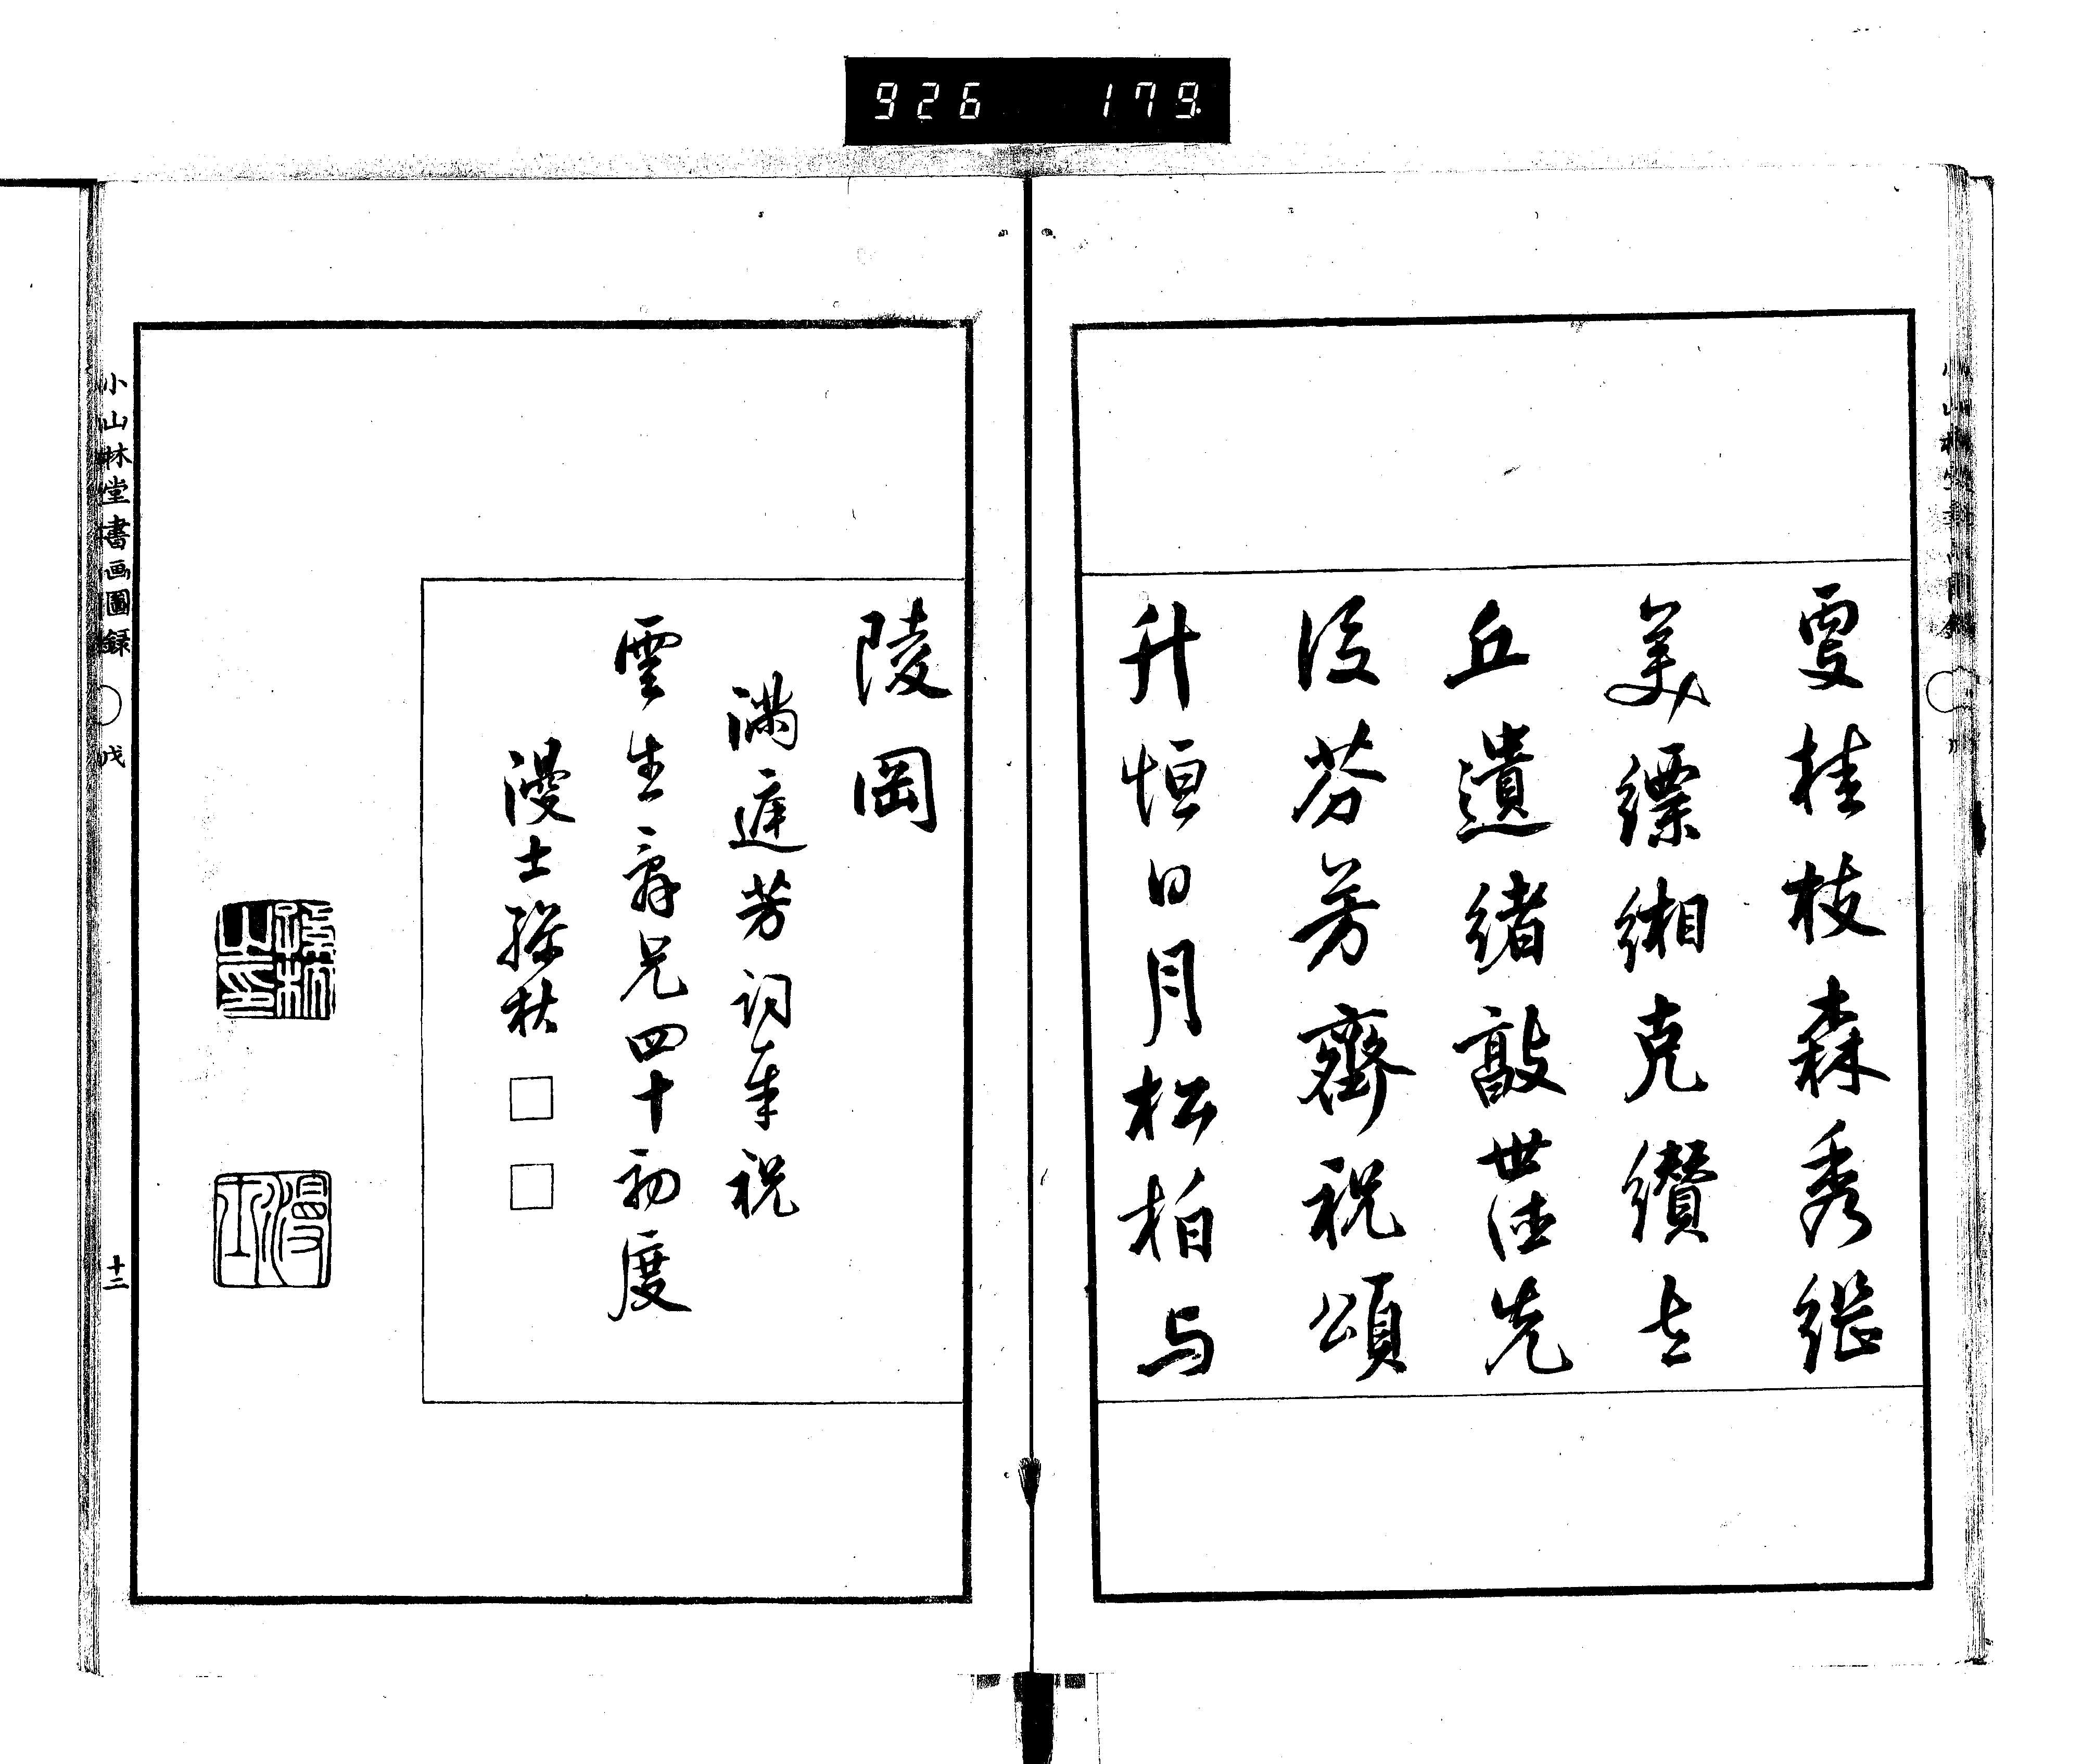 926 179
桂枝森秀継
美縹緗克纘左
丘遺緒敲世德先
後芬芳齊祝頌
升恒日月松柏与
陵岡
満庭芳詞奉祝
雲生兄四十初度
漫士孫杕
□
□
孫杕之印
漫士
小山林堂書画圖録
戊
十二